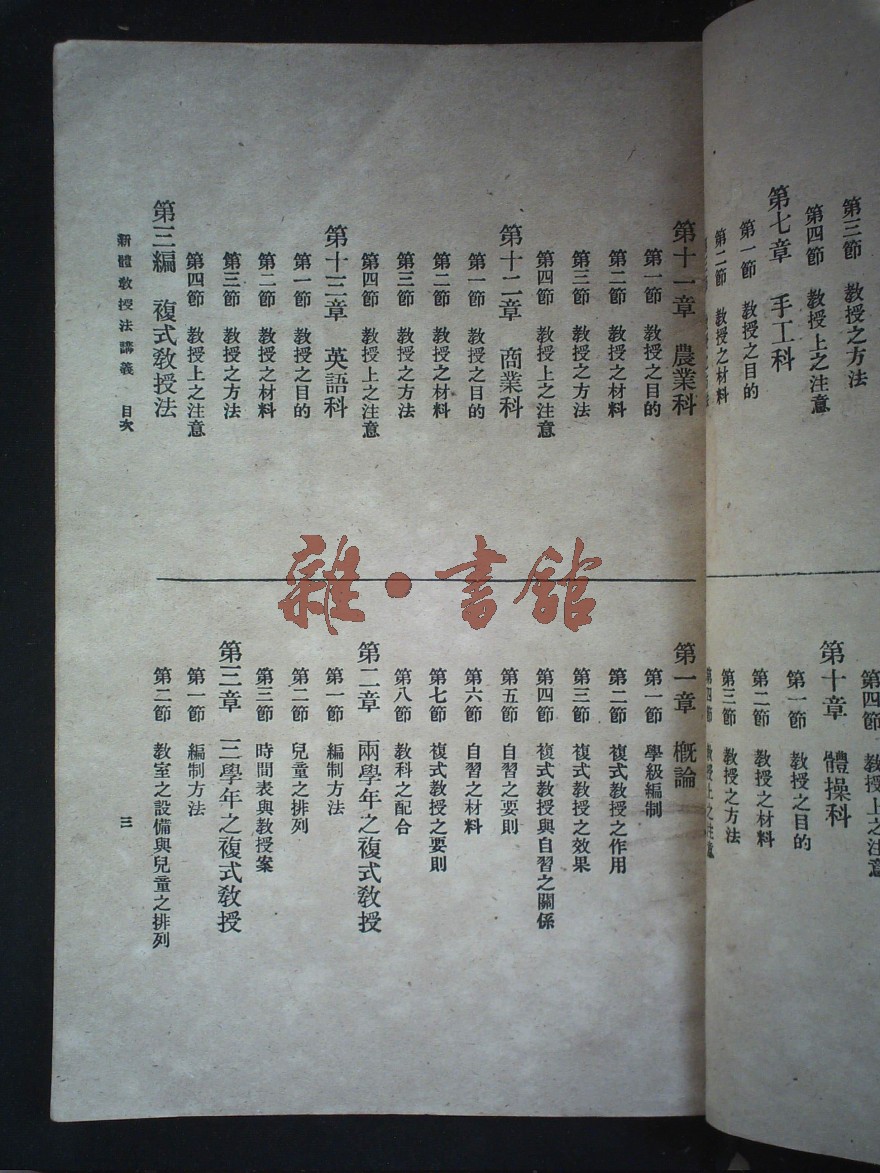 第三節　教授之方法
第四節　教授上之注意
第七章　手工科
第一節　教授之目的
第二節　教授之材料
第四節　教授上之注意
第十章　體操科
第一節　教授之目的
第二節　教授之材料
第三節　教授之方法
第四節　教授上之注意
第十一章　農業科
第一節　教授之目的
第二節　教授之材料
第三節　教授之方法
第四節　教授上之注意
第十二章　商業科
第一節　教授之目的
第二節　教授之材料
第三節　教授之方法
第四節　教授上之注意
第十三章　英語科
第一節　教授之目的
第二節　教授之材料
第三節　教授之方法
第四節　教授上之注意
第三編　複式教授法
第一章　概論
第一節　學級編制
第二節　複式教授之作用
第三節　複式教授之效果
第四節　複式教授與自習之關係
第五節　自習之要則
第六節　自習之材料
第七節　複式教授之要則
第八節　教科之配合
第二章　兩學年之複式教授
第一節　編制方法
第二節　兒童之排列
第三節　時間表與教授案
第三章　三學年之複式教授
第一節　編制方法
第二節　教室之設備與兒童之排列
新體教授法講義　目次
三
雜·書館